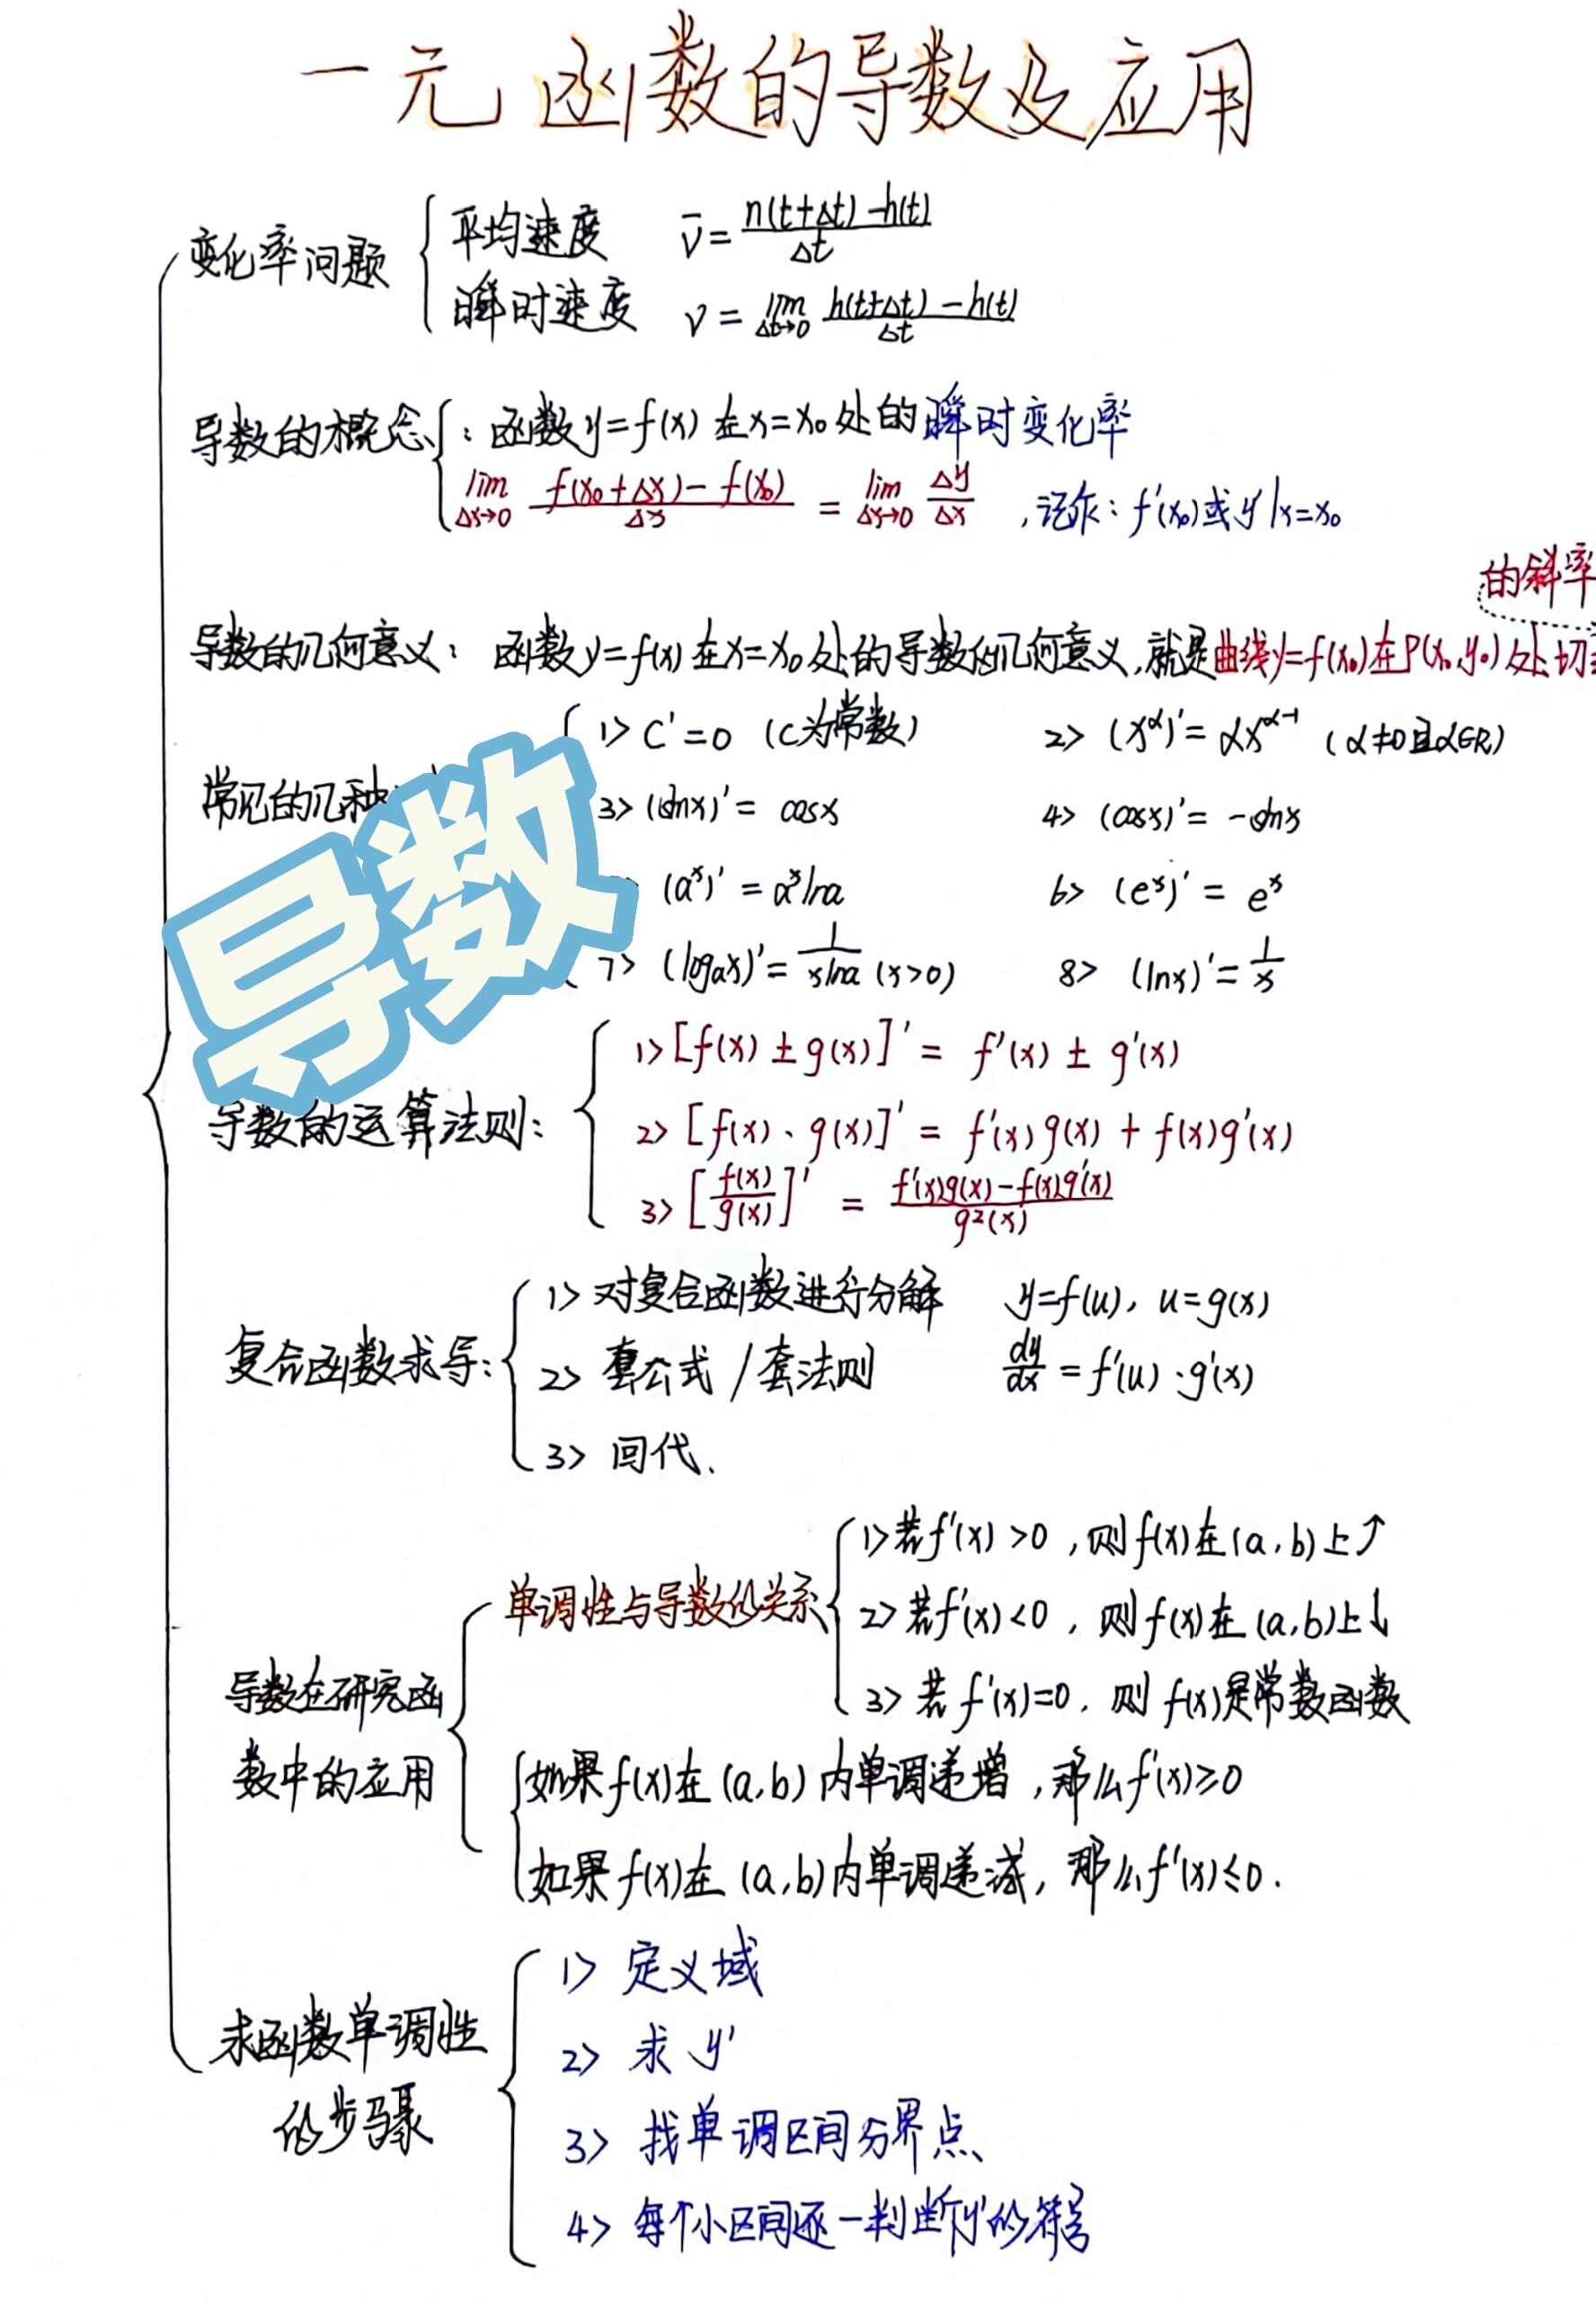 一元函数的导数及应用
变化率问题
平均速度 v̄ = n(t+Δt)-h(t) / Δt
瞬时速度 v = lim Δt→0 h(t+Δt)-h(t) / Δt
导数的概念 : 函数y=f(x)在x=x₀处的瞬时变化率
lim Δx→0 f(x₀+Δx)-f(x₀) / Δx = lim Δx→0 Δy/Δx ,记作: f'(x₀)或y'|x=x₀
的斜率
导数的几何意义: 函数y=f(x)在x=x₀处的导数的几何意义,就是曲线y=f(x₀)在P(x₀,y₀)处切
常见的几种
1> C'=0 (C为常数) 2> (x^α)'=αx^(α-1) (α≠0且α∈R)
3> (sinx)'= cosx 4> (cosx)'= -sinx
(a^x)'=a^x lna 6> (e^x)'= e^x
7> (logₐx)'= 1/xlna (x>0) 8> (lnx)'= 1/x
导数
导数的运算法则:
1> [f(x)±g(x)]'= f'(x) ± g'(x)
2> [f(x)、g(x)]'= f'(x)g(x) + f(x)g'(x)
3> [f(x)/g(x)]' = f'(x)g(x)-f(x)g'(x) / g²(x)
复合函数求导:
1> 对复合函数进行分解 y=f(u), u=g(x)
2> 套公式/套法则 dy/dx = f'(u)·g'(x)
3> 回代.
导数在研究函
数中的应用
单调性与导数的关系
1>若f'(x)>0,则f(x)在(a,b)上↑
2>若f'(x)<0,则f(x)在(a,b)上↓
3>若f'(x)=0,则f(x)是常数函数
如果f(x)在(a,b)内单调递增,那么f'(x)≥0
如果f(x)在(a,b)内单调递减,那么f'(x)≤0.
求函数单调性
的步骤
1> 定义域
2> 求y'
3> 找单调区间分界点
4> 每个小区间逐一判断y'的符号